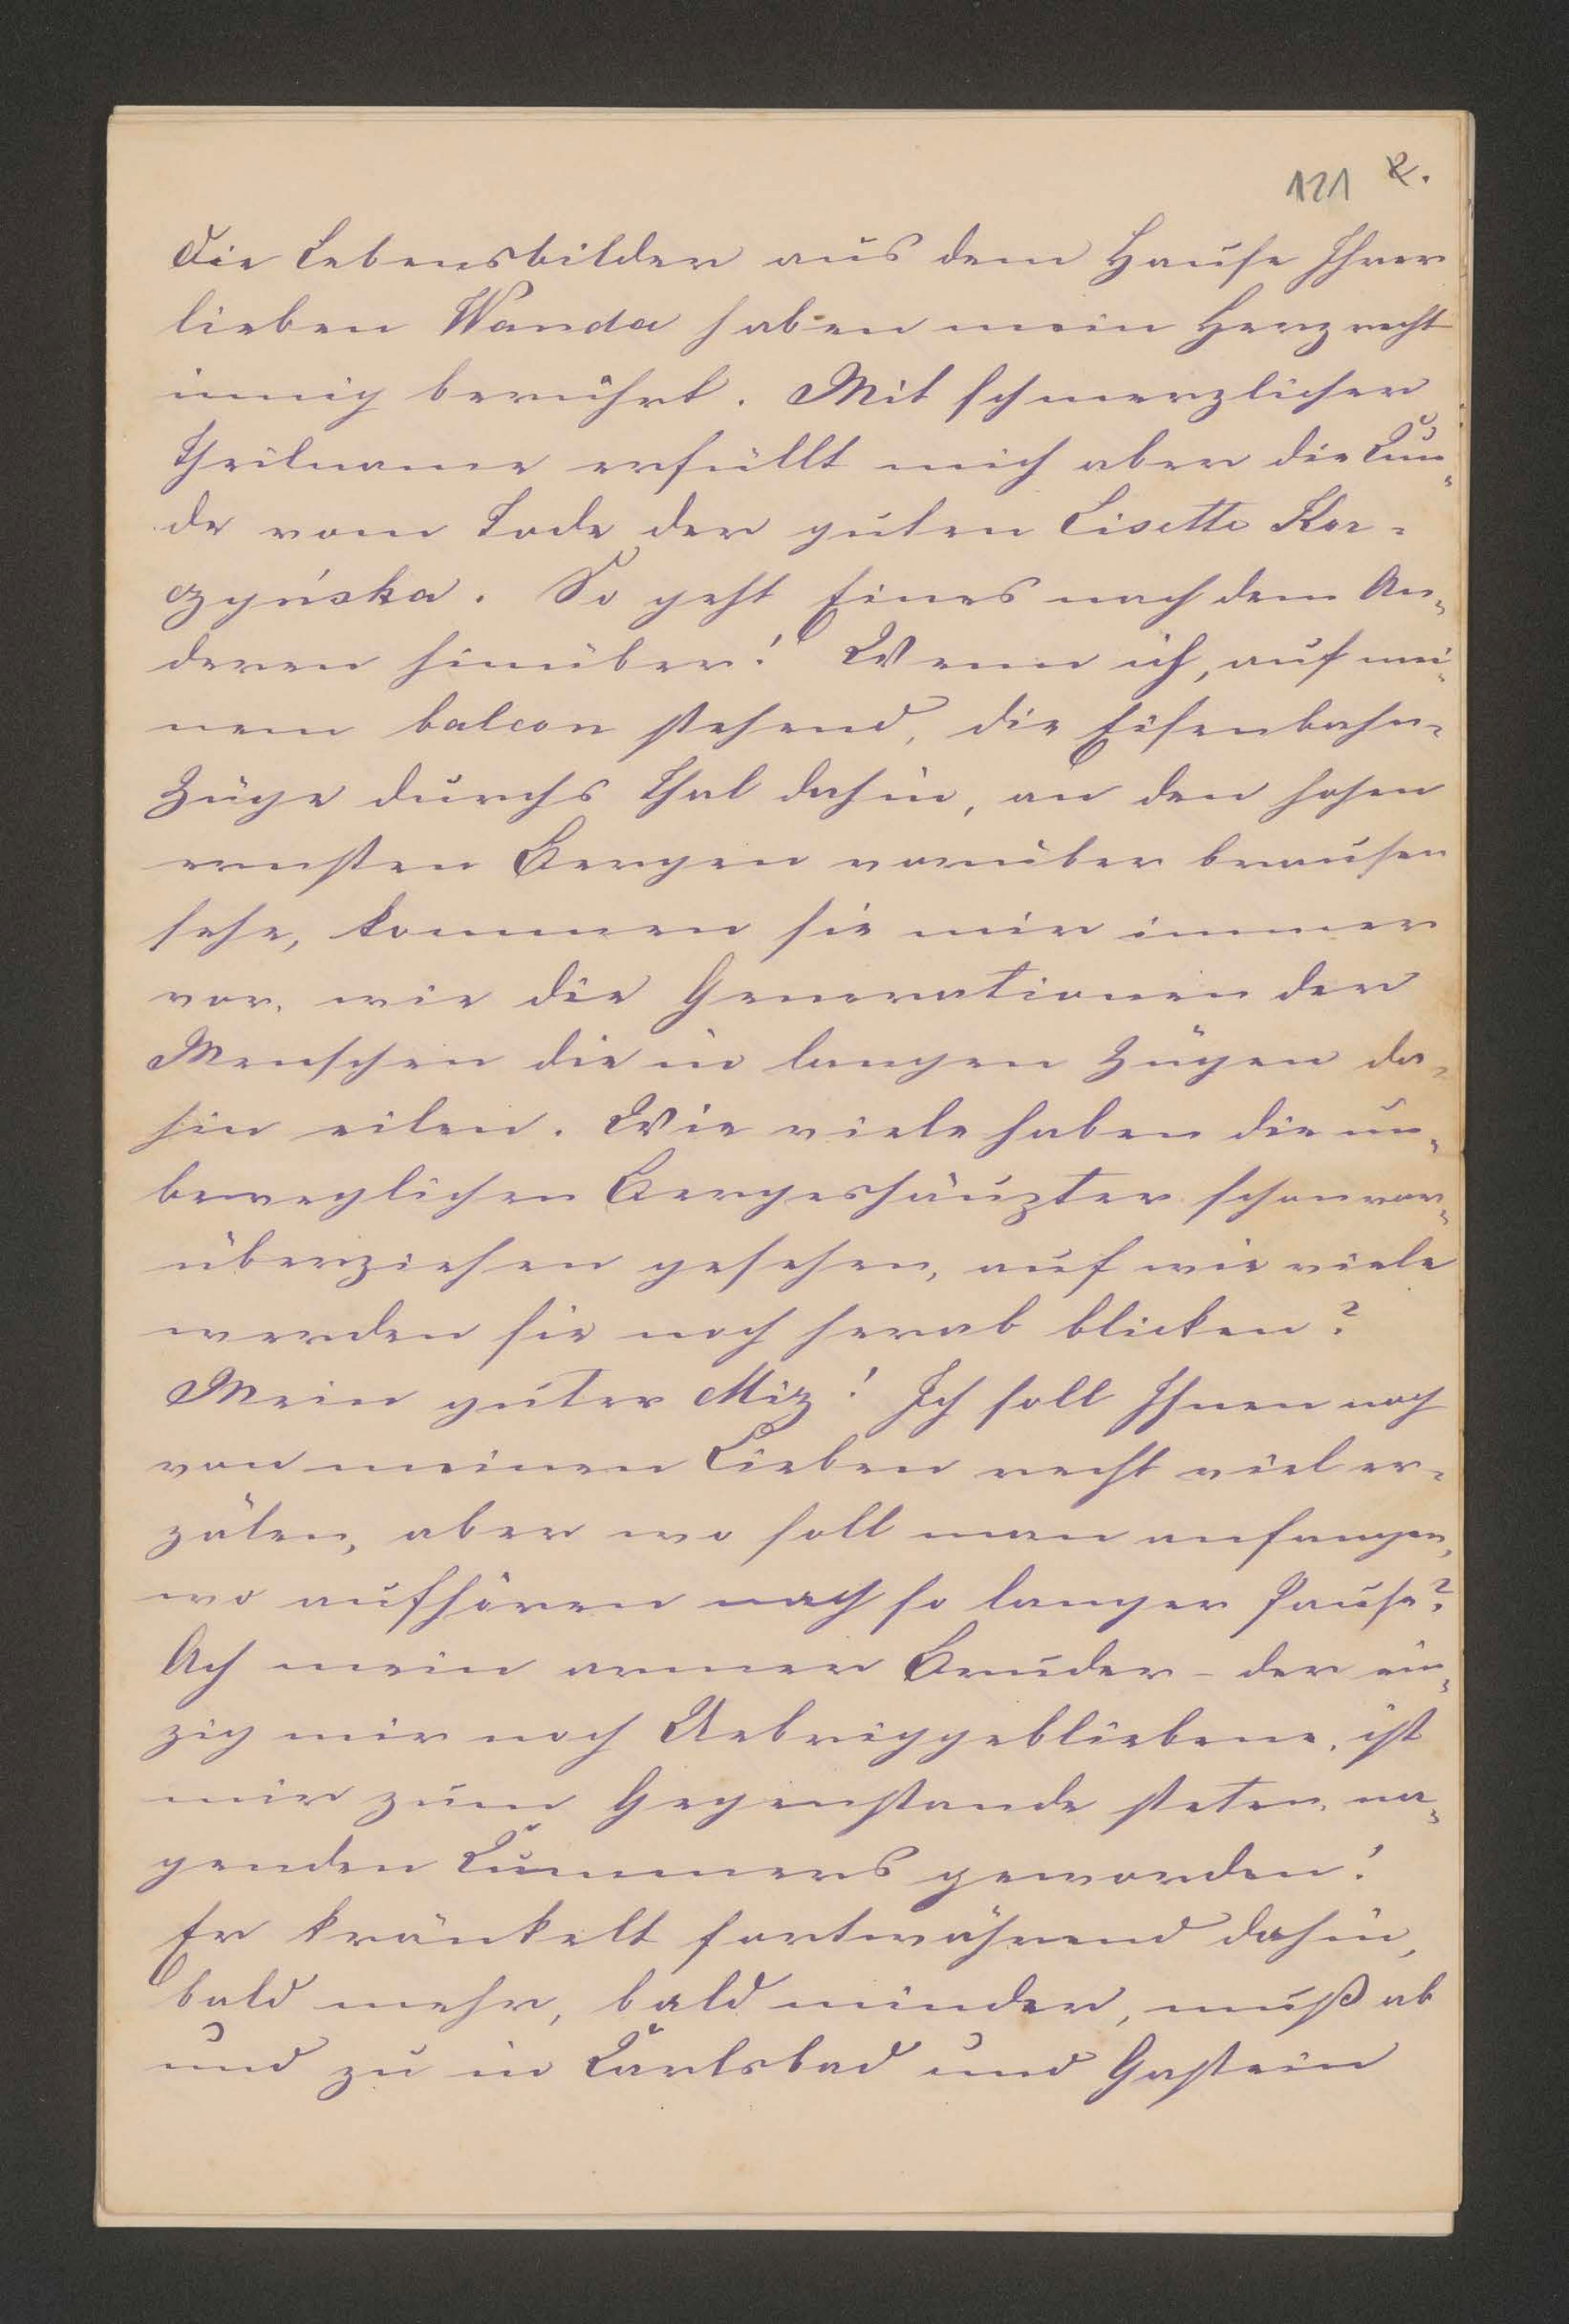 121 2.
Die Lebensbilder aus dem Hause Ihrer
lieben Wanda haben mein Herz recht
innig berührt. Mit schmerzlicher
Theilname erfüllt mich aber die Kun=
de vom Tode der guten Lisette Kor=
czyńska. So geht Eines nach dem An=
deren hinüber! Wenn ich, auf mei=
nem balcon stehend, die Eisenbahn=
Züge durchs Thal dahin, an den hohen
ernsten Bergen vorüber brausen
sehe, kommen sie mir immer
vor, wie die Generationen der
Menschen die in langen Zügen da=
hin eilen. Wie viele haben die un=
beweglichen Bergeshäupter schon vor=
überziehen gesehen, auf wie viele
werden sie noch herab blicken?
Mein guter Miz! Ich soll Ihnen noch
von meinen Lieben recht viel er=
zälen, aber wo soll man anfangen,
wo aufhören nach so langer Pause?
Ach mein armer Bruder – der ein=
zig mir noch Uebriggebliebene, ist
mir zum Gegenstande steten, na=
genden Kummers geworden!
Er kränkelt fortwährend dahin,
bald mehr, bald minder, muß ab
und zu in Karlsbad und Gastein